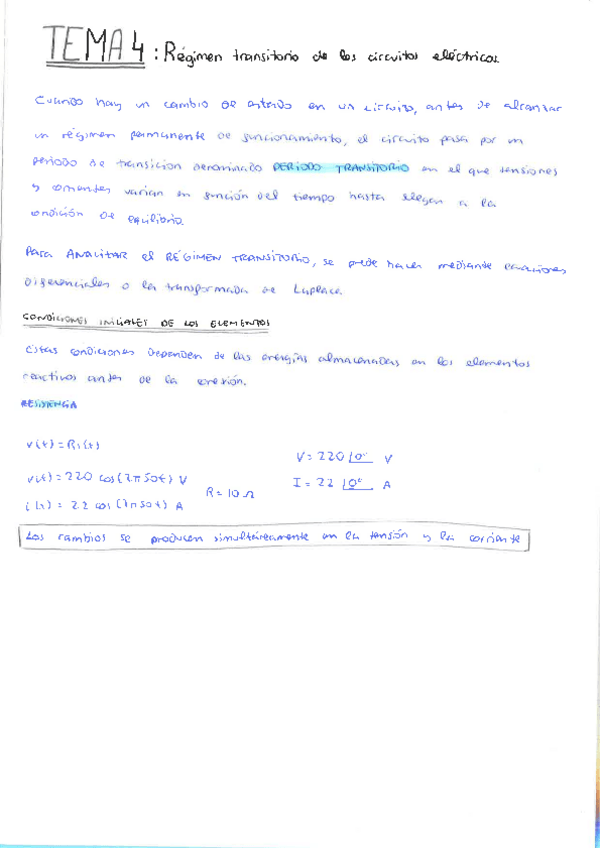 TEMA 4: Régimen transitorio de los circuitos eléctricos.
Cuando hay un cambio de estado en un circuito, antes de alcanzar
un régimen permanente de funcionamiento, el circuito pasa por un
periodo de transición denominado PERIODO TRANSITORIO en el que tensiones
y corrientes varían en función del tiempo hasta llegan a la
condición de equilibrio.
Para ANALIZAR el RÉGIMEN TRANSITORIO, se puede hacer mediante ecuaciones
diferenciales o la transformada de Laplace.
CONDICIONES INICIALES DE LOS ELEMENTOS
Estas condiciones dependen de las energías almacenadas en los elementos
reactivos antes de la conexión.
RESISTENCIA
v(t)=Ri(t)
v(t)=220 cos(2π50t) V
i(t)= 22 cos(2π50t) A
R=10Ω
V=220 /0° V
I=22 /0° A
Los cambios se producen simultáneamente en la tensión y la corriente